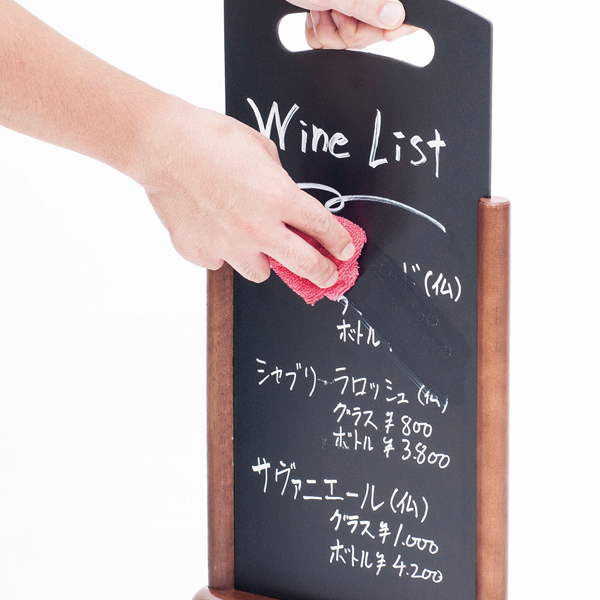 Wine List
(仏)
ボトル
シャブリ ラロッシュ (仏)
グラス ¥800
ボトル ¥3.800
サヴァニエール (仏)
グラス ¥1.000
ボトル ¥4.200